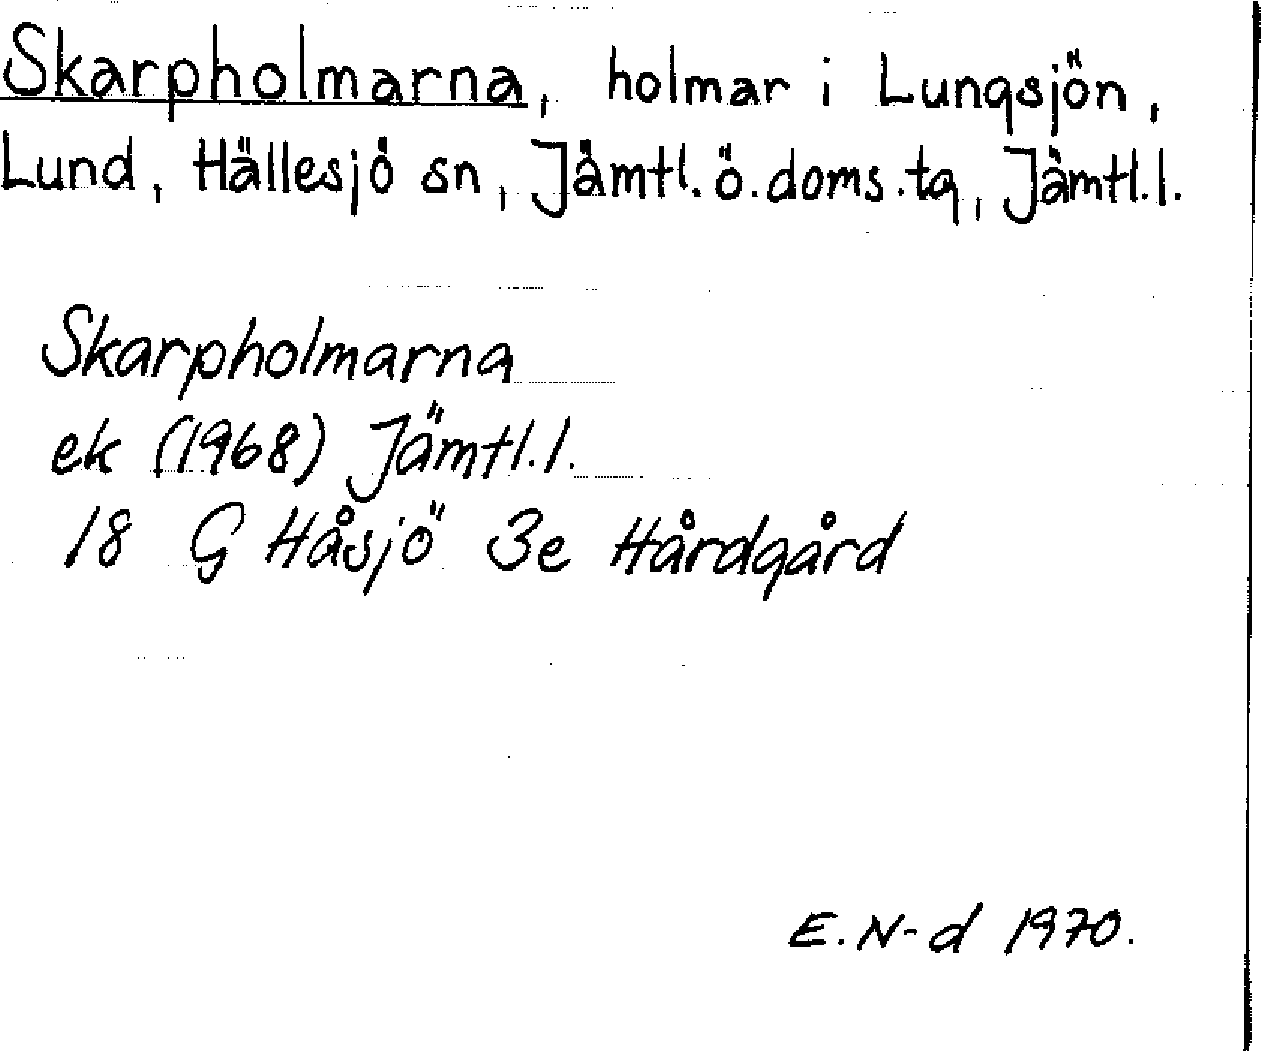 Skarpholmarna, holmar i Lungsjön,
Lund, Hällesjö sn, Jämtl. ö. doms. tg, Jämtl. l.
Skarpholmarna
ek (1968) Jämtl. l.
18 G Håsjö 3e Hårdgård
E. N-d 1970.